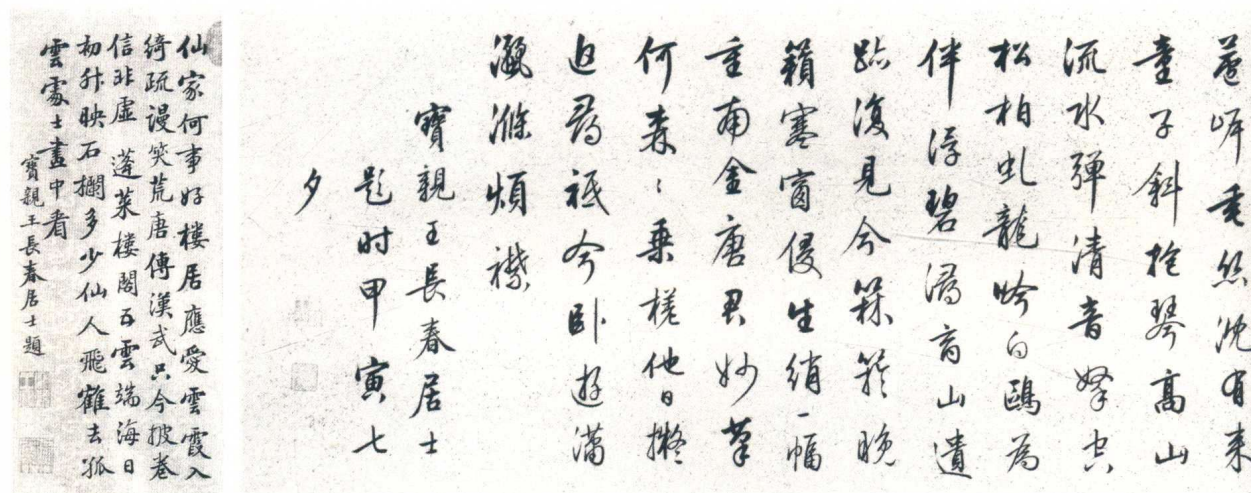 岍垂有来
童子斜抱琴高山
流水彈清音拏空
松柏虬龍吟白鷗為
伴浮碧潯商山遺
跡復見今箖箊晚
籟寒窗侵生綃一幅
重南金唐君妙筆
何森〻乗槎他日擬
追尋祗今卧遊瀟
灑滌煩襟
寶親王長春居士
題时甲寅七
夕
仙家何事好樓居應愛雲霞入
綺疏謾笑荒唐傳漢武只今披卷
信非虛 蓬萊樓閣五雲端海日
初升映石欄多少仙人飛鶴去孤
雲處士畫中看
寶親王長春居士題